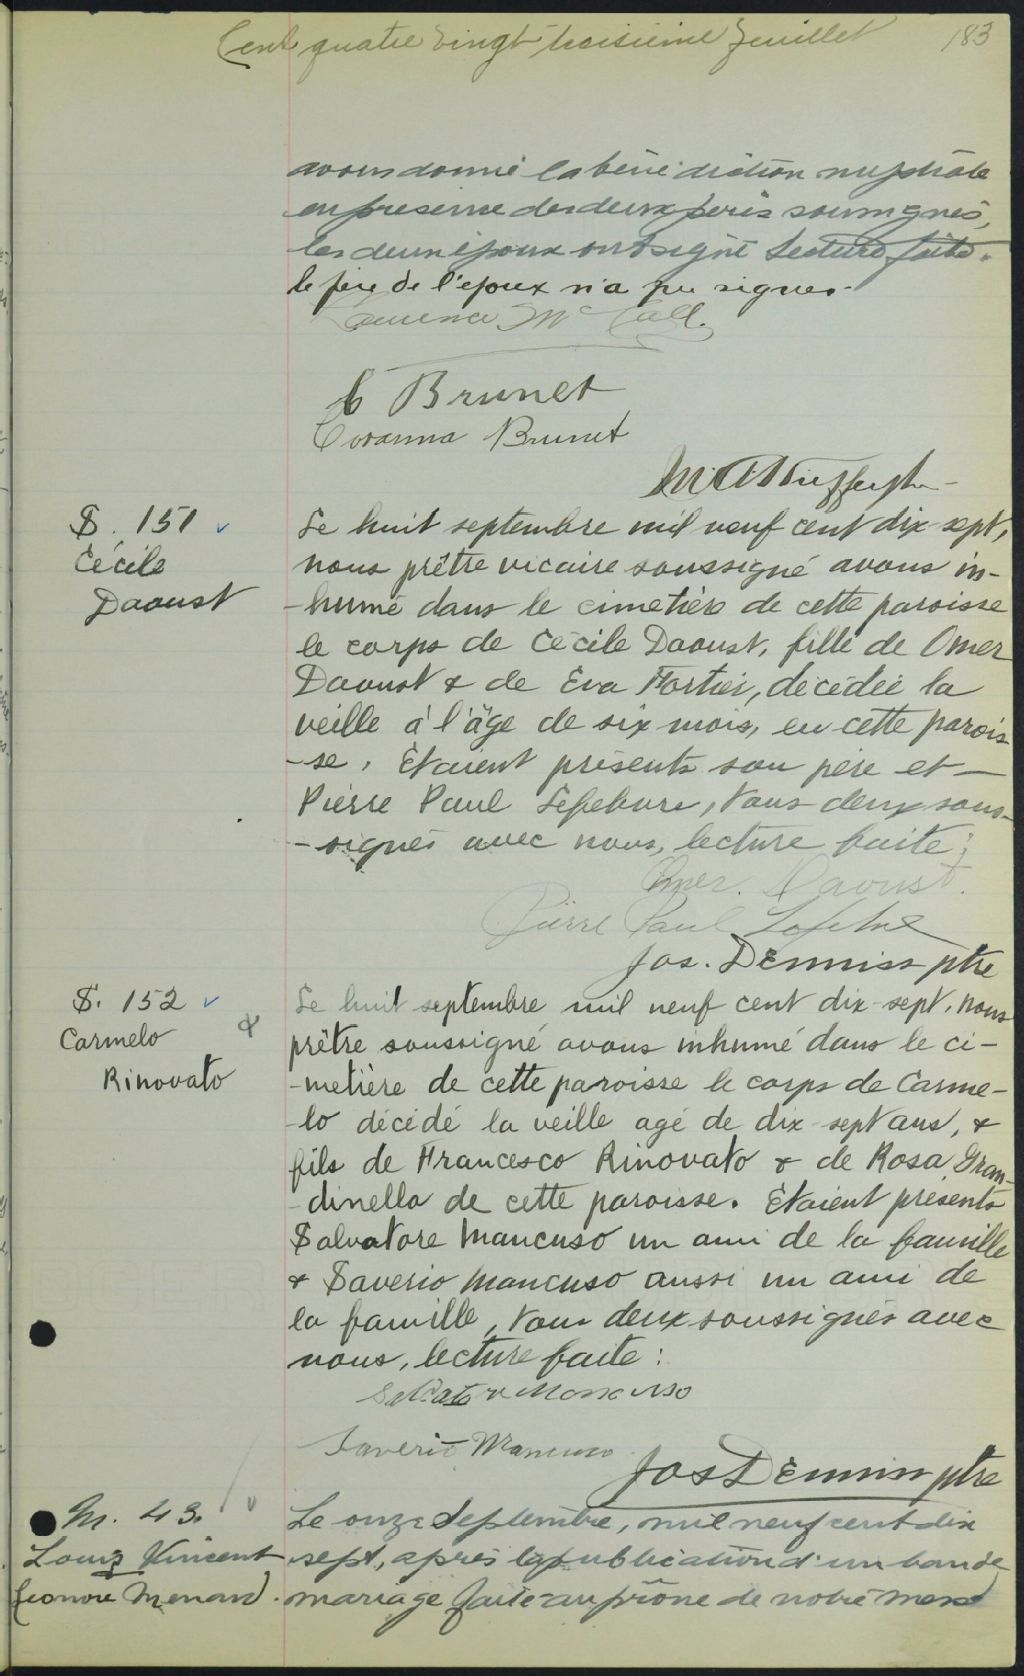 Cent quatre vingt troisième feuillet 183
avons donné la bénédiction nuptiale
en présence des deux pères soussignés,
les deux époux ont signé Lecture faite.
le père de l'époux n'a pu signer.
Mc Call.
Brunet
Brunet
S. 151
Cécile
Daoust
Le huit septembre mil neuf cent dix-sept,
nous prêtre vicaire soussigné avons in-
-humé dans le cimetière de cette paroisse
le corps de Cécile Daoust, fille de Omer
Daoust & de Eva Fortier, décédée la
veille à l'âge de six mois, en cette parois
-se. Etaient présents son père et
Pierre Paul Lefebvre, tous deux sous-
-signés avec nous, lecture faite;
Omer. Daoust.
Pierre Paul Lefebvre
Jos. Demiss ptre
S. 152
Carmelo
Rinovato
Le huit septembre mil neuf cent dix-sept, nous
prêtre soussigné avons inhumé dans le ci-
-metière de cette paroisse le corps de Carme-
-lo décédé la veille agé de dix-sept ans, &
fils de Francesco Rinovato & de Rosa Gran-
-dinello de cette paroisse. Etaient présents
Salvatore Mancuso un ami de la famille
& Saverio Mancuso aussi un ami de
la famille, tous deux soussignés avec
nous, lecture faite:
Mancuso
Saverio Mancuso
Jos Demiss ptre
M. 43.
Louis Vincent
Leonore Menard.
Le onze Septembre, mil neuf cent dix
sept, après la publication d'un ban de
mariage faite au prône de notre messe